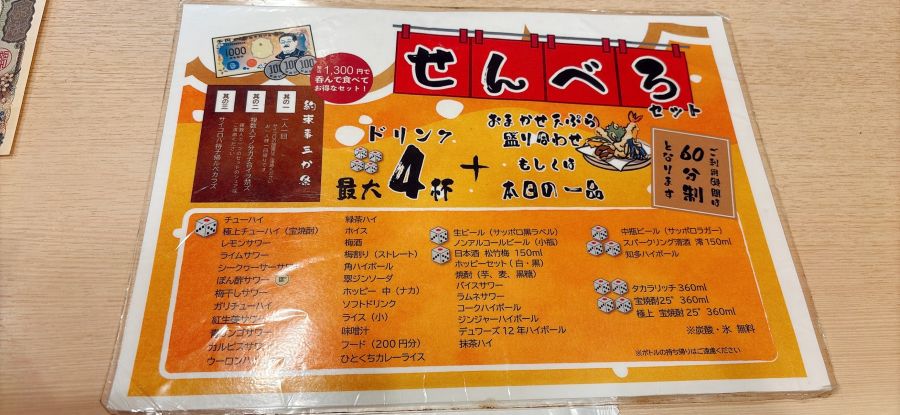 1000
100
100
100
税込
1,300円で
呑んで食べて
お得なセット!
せんべろ
セット
約束事三か条
其の一
一人一回
其の二
其の三
ドリンク
最大4杯
+
おまかせ天ぷら
盛り合わせ
もしくは
本日の一品
ご利用時間は
60分制
となります
チューハイ
極上チューハイ(宝焼酎)
レモンサワー
ライムサワー
シークヮーサーサワー
ぽん酢サワー
梅干しサワー
ガリチューハイ
紅生姜サワー
青リンゴサワー
カルピスサワー
ウーロンハイ
緑茶ハイ
ホイス
梅酒
梅割り(ストレート)
角ハイボール
翠ジンソーダ
ホッピー 中(ナカ)
ソフトドリンク
ライス(小)
味噌汁
フード(200円分)
ひとくちカレーライス
生ビール(サッポロ黒ラベル)
ノンアルコールビール(小瓶)
日本酒 松竹梅 150ml
ホッピーセット(白・黒)
焼酎(芋、麦、黒糖)
バイスサワー
ラムネサワー
コークハイボール
ジンジャーハイボール
デュワーズ12年ハイボール
抹茶ハイ
中瓶ビール(サッポロラガー)
スパークリング清酒 澪 150ml
知多ハイボール
タカラリッチ 360ml
宝焼酎25° 360ml
極上 宝焼酎25° 360ml
※炭酸・氷 無料
※ボトルの持ち帰りはご遠慮ください